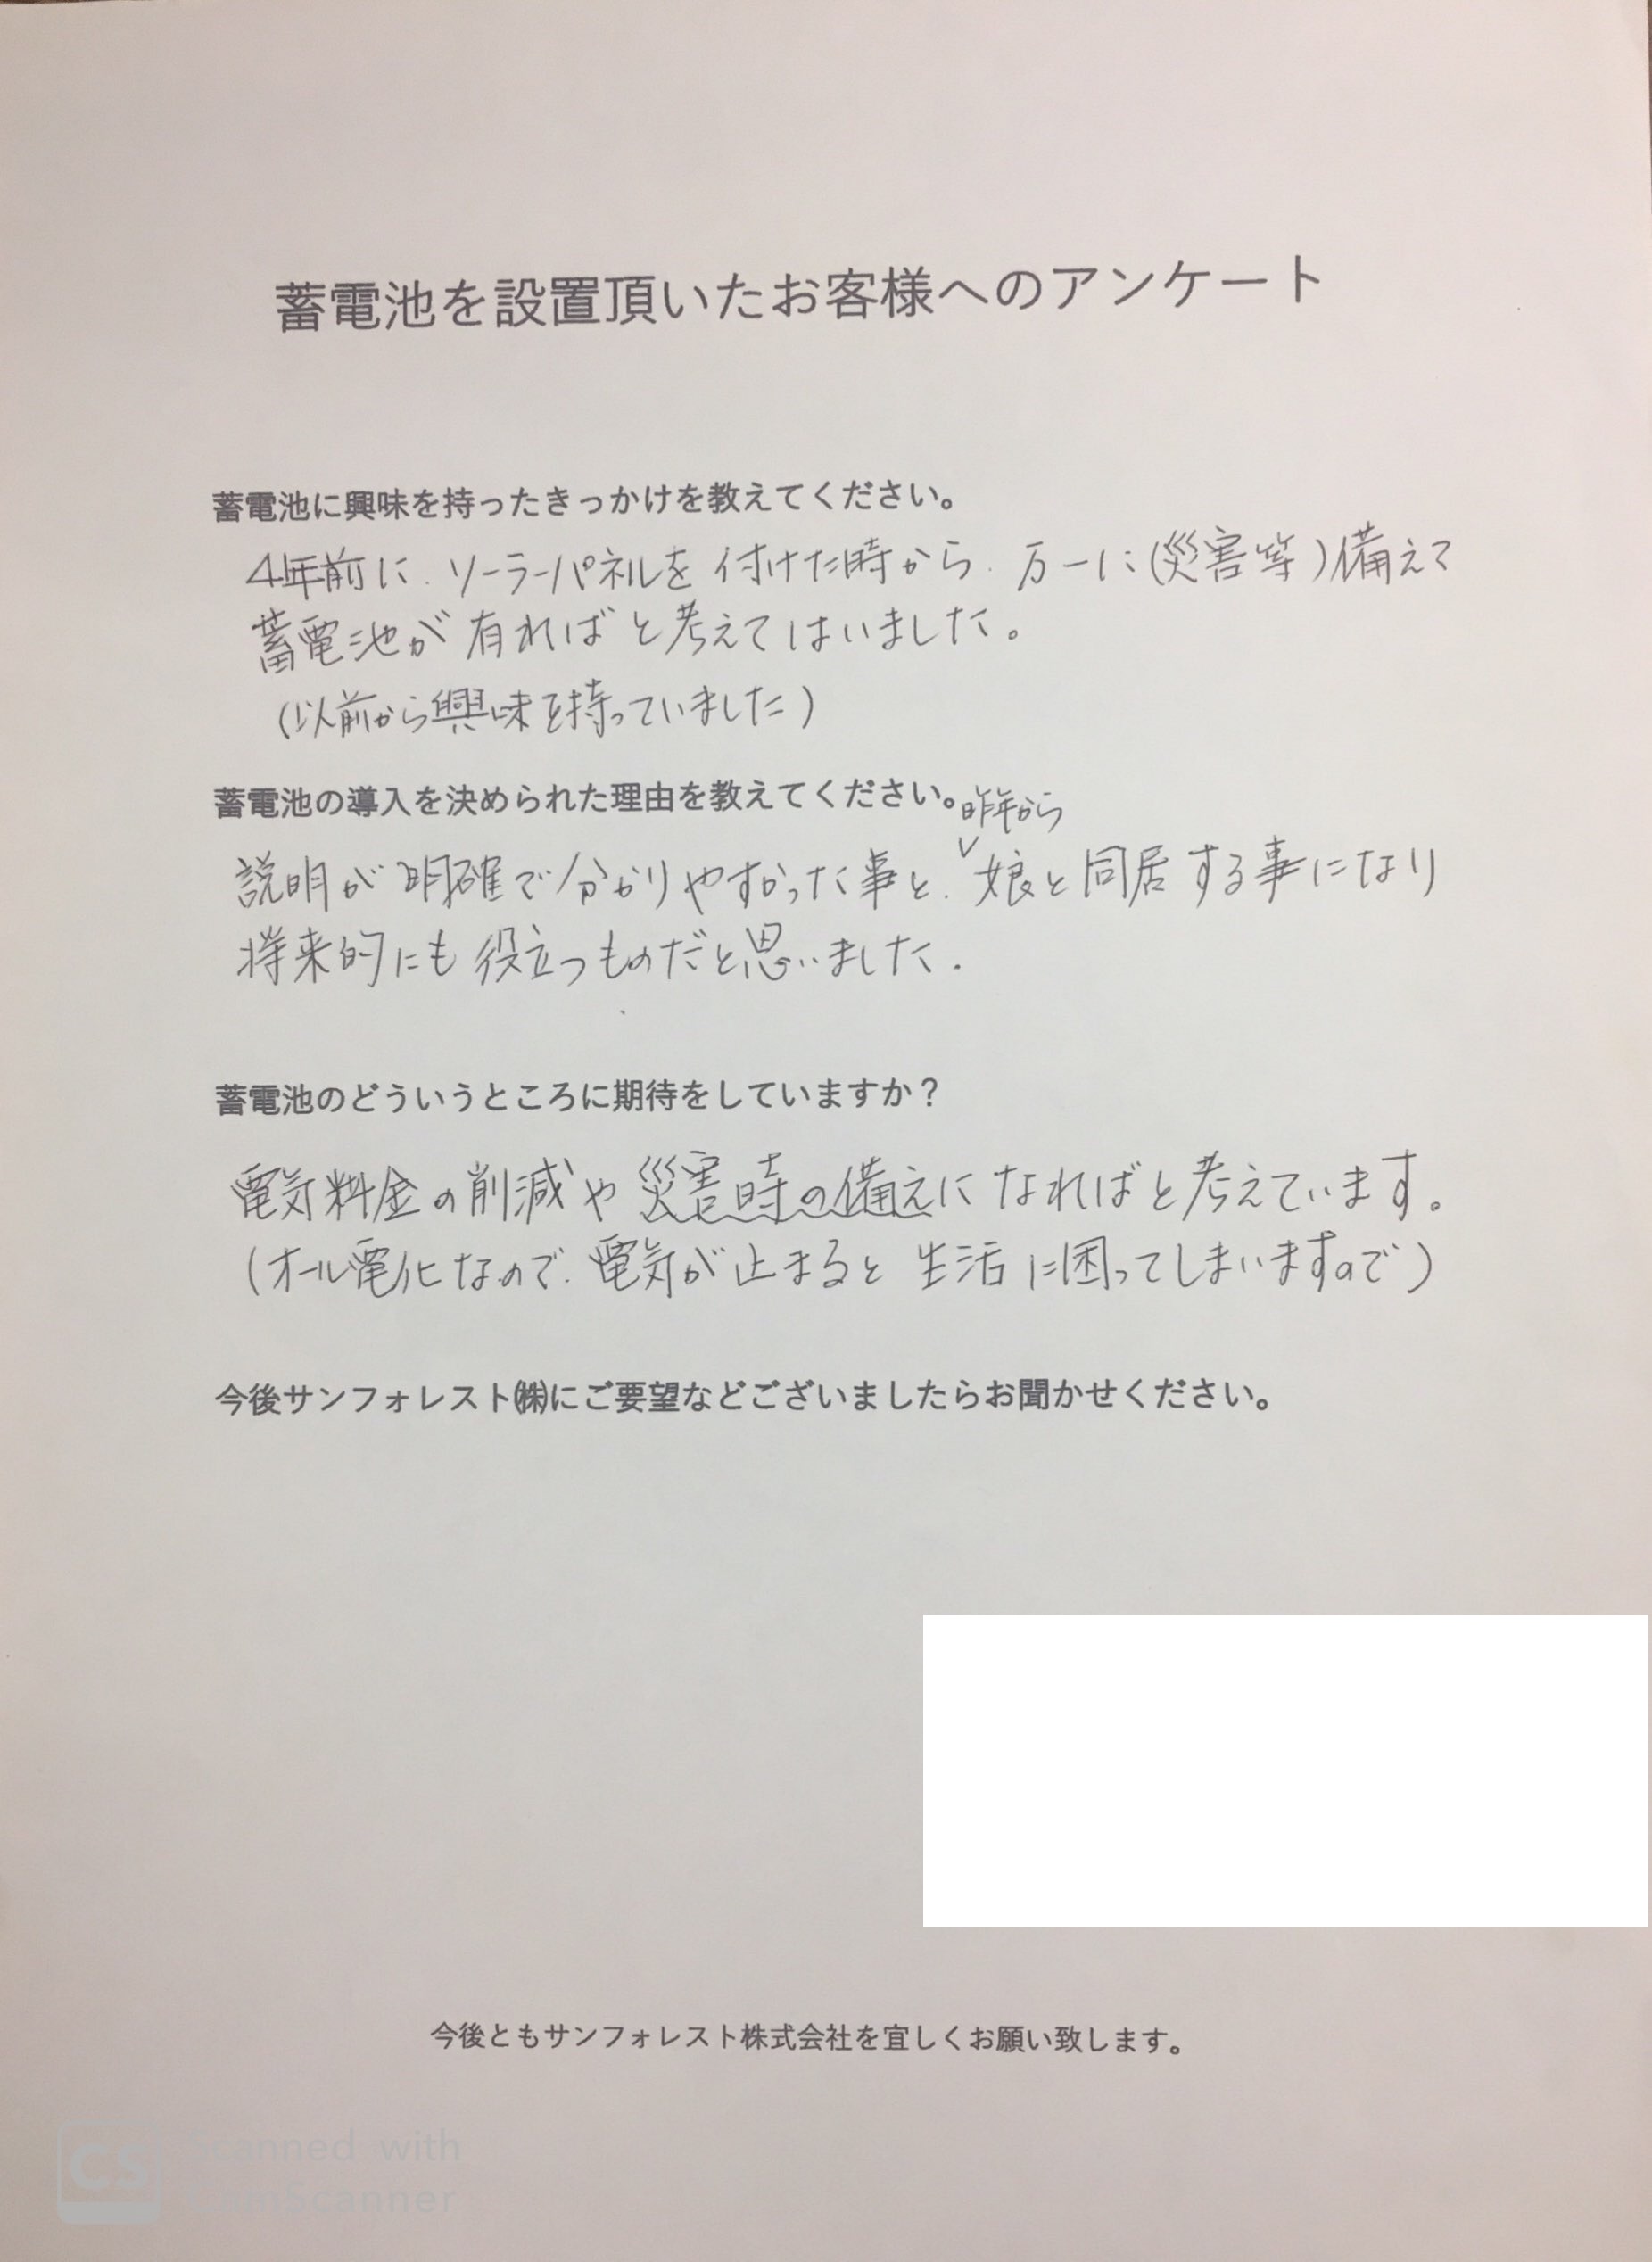 蓄電池を設置頂いたお客様へのアンケート
蓄電池に興味を持ったきっかけを教えてください。
4年前に、ソーラーパネルを付けた時から、万一に(災害等)備えて
蓄電池が有ればと考えてはいました。
(以前から興味を持っていました)
蓄電池の導入を決められた理由を教えてください。
昨年から
説明が明確で分かりやすかった事と、娘と同居する事になり
将来的にも役立つものだと思いました.
蓄電池のどういうところに期待をしていますか？
電気料金の削減や災害時の備えになればと考えています。
(オール電化なので、電気が止まると生活に困ってしまいますので)
今後サンフォレスト㈱にご要望などございましたらお聞かせください。
今後ともサンフォレスト株式会社を宜しくお願い致します。
CS
Scanned with
CamScanner